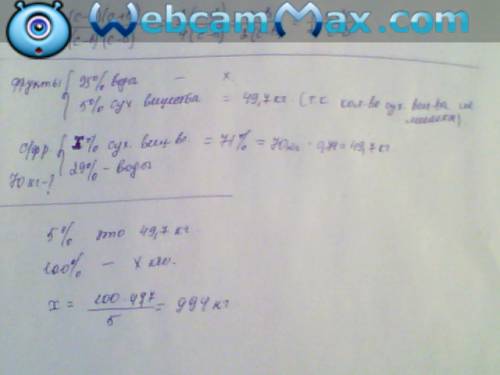 WebcamMax.com
Фрукты { 95% вода — x
5% сух вещества = 49,7 кг (т.к. кол-во сух. вещ-ва не
с/фр. { X% сух. вещ-во = 71% = 70кг · 0,71 = 49,7 кг
70 кг-? 29% - воды
5% это 49,7 кг.
100% — x кг.
x = 100·497 / 5 = 994 кг